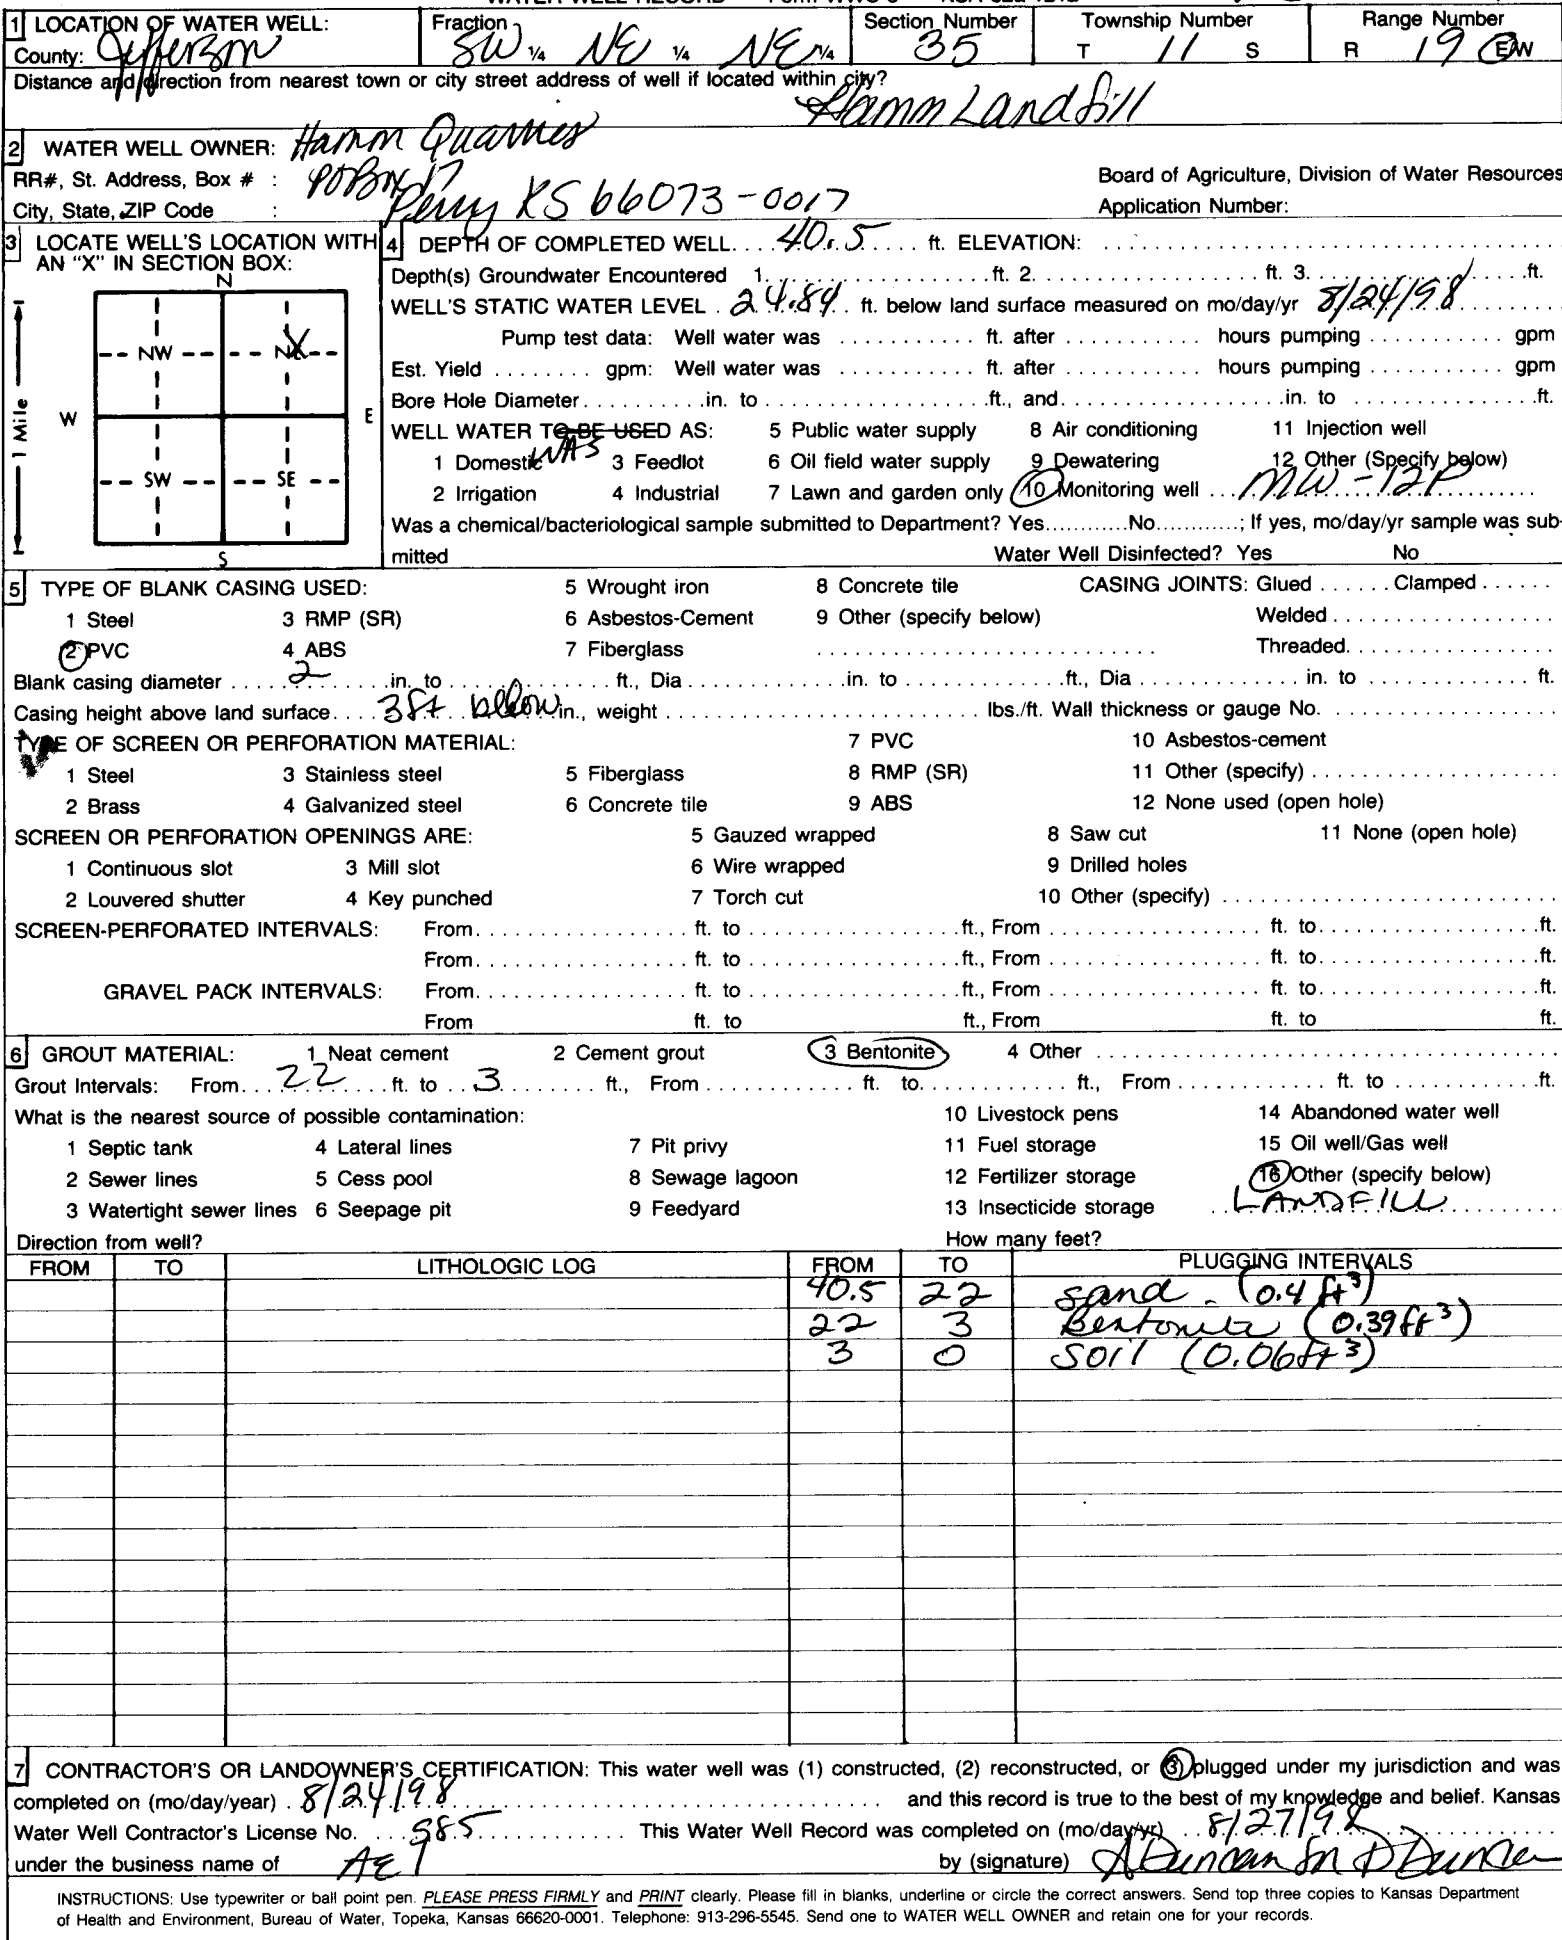 1 LOCATION OF WATER WELL: Fraction Section Number Township Number Range Number
County: Jefferson SW ¼ NE ¼ NE ¼ 35 T 11 S R 19 E/W
Distance and direction from nearest town or city street address of well if located within city?
Hamm Landfill
2 WATER WELL OWNER: Hamm Quarries
RR#, St. Address, Box # : PO Box 17 Board of Agriculture, Division of Water Resources
City, State, ZIP Code : Perry KS 66073-0017 Application Number:
3 LOCATE WELL'S LOCATION WITH AN "X" IN SECTION BOX:
N
NW NE
W E
SW SE
S
1 Mile
X
4 DEPTH OF COMPLETED WELL 40.5 ft. ELEVATION:
Depth(s) Groundwater Encountered 1. ft. 2. ft. 3. ft.
WELL'S STATIC WATER LEVEL 24.84 ft. below land surface measured on mo/day/yr 8/24/98
Pump test data: Well water was ft. after hours pumping gpm
Est. Yield gpm: Well water was ft. after hours pumping gpm
Bore Hole Diameter in. to ft., and in. to ft.
WELL WATER TO BE USED AS: 5 Public water supply 8 Air conditioning 11 Injection well
WAS
1 Domestic 3 Feedlot 6 Oil field water supply 9 Dewatering 12 Other (Specify below)
2 Irrigation 4 Industrial 7 Lawn and garden only 10 Monitoring well MW-12P
Was a chemical/bacteriological sample submitted to Department? Yes No ; If yes, mo/day/yr sample was sub-
mitted Water Well Disinfected? Yes No
5 TYPE OF BLANK CASING USED: 5 Wrought iron 8 Concrete tile CASING JOINTS: Glued Clamped
1 Steel 3 RMP (SR) 6 Asbestos-Cement 9 Other (specify below) Welded
2 PVC 4 ABS 7 Fiberglass Threaded
Blank casing diameter 2 in. to ft., Dia in. to ft., Dia in. to ft.
Casing height above land surface 3ft below in., weight lbs./ft. Wall thickness or gauge No.
TYPE OF SCREEN OR PERFORATION MATERIAL: 7 PVC 10 Asbestos-cement
1 Steel 3 Stainless steel 5 Fiberglass 8 RMP (SR) 11 Other (specify)
2 Brass 4 Galvanized steel 6 Concrete tile 9 ABS 12 None used (open hole)
SCREEN OR PERFORATION OPENINGS ARE: 5 Gauzed wrapped 8 Saw cut 11 None (open hole)
1 Continuous slot 3 Mill slot 6 Wire wrapped 9 Drilled holes
2 Louvered shutter 4 Key punched 7 Torch cut 10 Other (specify)
SCREEN-PERFORATED INTERVALS: From ft. to ft., From ft. to ft.
From ft. to ft., From ft. to ft.
GRAVEL PACK INTERVALS: From ft. to ft., From ft. to ft.
From ft. to ft., From ft. to ft.
6 GROUT MATERIAL: 1 Neat cement 2 Cement grout 3 Bentonite 4 Other
Grout Intervals: From 22 ft. to 3 ft., From ft. to ft., From ft. to ft.
What is the nearest source of possible contamination: 10 Livestock pens 14 Abandoned water well
1 Septic tank 4 Lateral lines 7 Pit privy 11 Fuel storage 15 Oil well/Gas well
2 Sewer lines 5 Cess pool 8 Sewage lagoon 12 Fertilizer storage 16 Other (specify below)
3 Watertight sewer lines 6 Seepage pit 9 Feedyard 13 Insecticide storage LANDFILL
Direction from well? How many feet?
FROM TO LITHOLOGIC LOG FROM TO PLUGGING INTERVALS
40.5 22 sand - (0.4 ft³)
22 3 Bentonite (0.39 ft³)
3 0 Soil (0.06 ft³)
7 CONTRACTOR'S OR LANDOWNER'S CERTIFICATION: This water well was (1) constructed, (2) reconstructed, or (3) plugged under my jurisdiction and was
completed on (mo/day/year) 8/24/98 and this record is true to the best of my knowledge and belief. Kansas
Water Well Contractor's License No. 585 This Water Well Record was completed on (mo/day/yr) 8/27/98
under the business name of AET by (signature) A Duncan for D Duncan
INSTRUCTIONS: Use typewriter or ball point pen. PLEASE PRESS FIRMLY and PRINT clearly. Please fill in blanks, underline or circle the correct answers. Send top three copies to Kansas Department
of Health and Environment, Bureau of Water, Topeka, Kansas 66620-0001. Telephone: 913-296-5545. Send one to WATER WELL OWNER and retain one for your records.